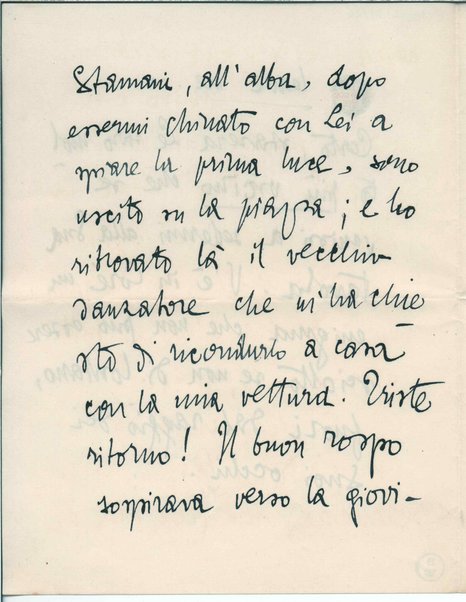 Stamani, all'alba, dopo
essermi chinato con Lei a
spiare la prima luce, sono
uscito su la piazza; e ho
ritrovato là il vecchio
danzatore che m'ha chie
sto di ricondurlo a casa
con la mia vettura. Triste
ritorno! Il buon rospo
sospirava verso la giovi-